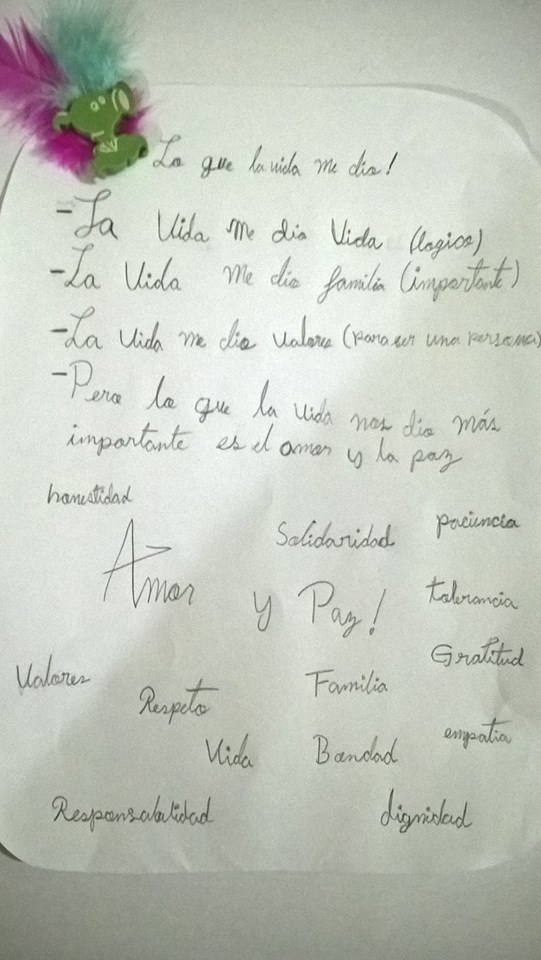 Lo que la vida me dio!
-La Vida me dio Vida (logico)
-La Vida me dio familia (importante)
-La Vida me dio valores (para ser una persona)
-Pero lo que la vida nos dio más
importante es el amor y la paz
honestidad
Solidaridad paciencia
Amor y Paz! tolerancia
Gratitud
Valores Respeto Familia
Vida Bondad empatia
Responsabilidad dignidad